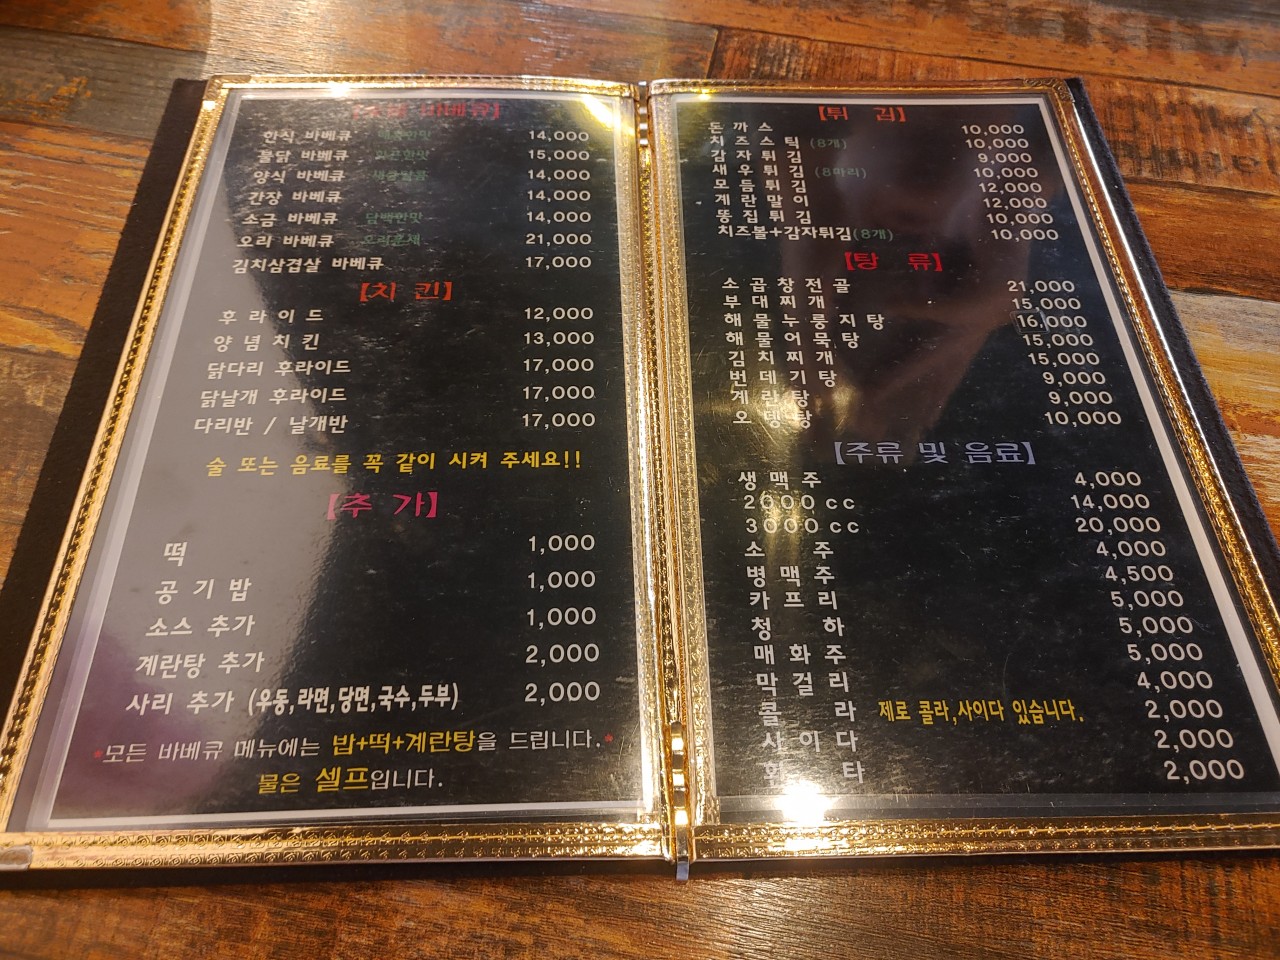 바베큐】
한식 바베큐 14,000
불닭 바베큐 화끈한맛 15,000
양식 바베큐 14,000
간장 바베큐 14,000
소금 바베큐 담백한맛 14,000
오리 바베큐 오리훈제 21,000
김치삼겹살 바베큐 17,000
【치 킨】
후 라 이 드 12,000
양 념 치 킨 13,000
닭다리 후라이드 17,000
닭날개 후라이드 17,000
다리반 / 날개반 17,000
술 또는 음료를 꼭 같이 시켜 주세요!!
【추 가】
떡 1,000
공 기 밥 1,000
소스 추가 1,000
계란탕 추가 2,000
사리 추가 (우동,라면,당면,국수,두부) 2,000
*모든 바베큐 메뉴에는 밥+떡+계란탕을 드립니다.*
물은 셀프입니다.
【튀 김】
돈 까 스 10,000
치 즈 스 틱 (8개) 10,000
감 자 튀 김 9,000
새 우 튀 김 (8마리) 10,000
모 듬 튀 김 12,000
계 란 말 이 12,000
똥 집 튀 김 10,000
치즈볼+감자튀김(8개) 10,000
【탕 류】
소 곱 창 전 골 21,000
부 대 찌 개 15,000
해 물 누 룽 지 탕 16,000
해 물 어 묵 탕 15,000
김 치 찌 개 15,000
번 데 기 탕 9,000
계 란 탕 9,000
오 뎅 탕 10,000
【주류 및 음료】
생 맥 주 4,000
2000cc 14,000
3000cc 20,000
소 주 4,000
병 맥 주 4,500
카 프 리 5,000
청 하 5,000
매 화 주 5,000
막 걸 리 4,000
콜 라 제로 콜라,사이다 있습니다. 2,000
사 이 다 2,000
환 타 2,000